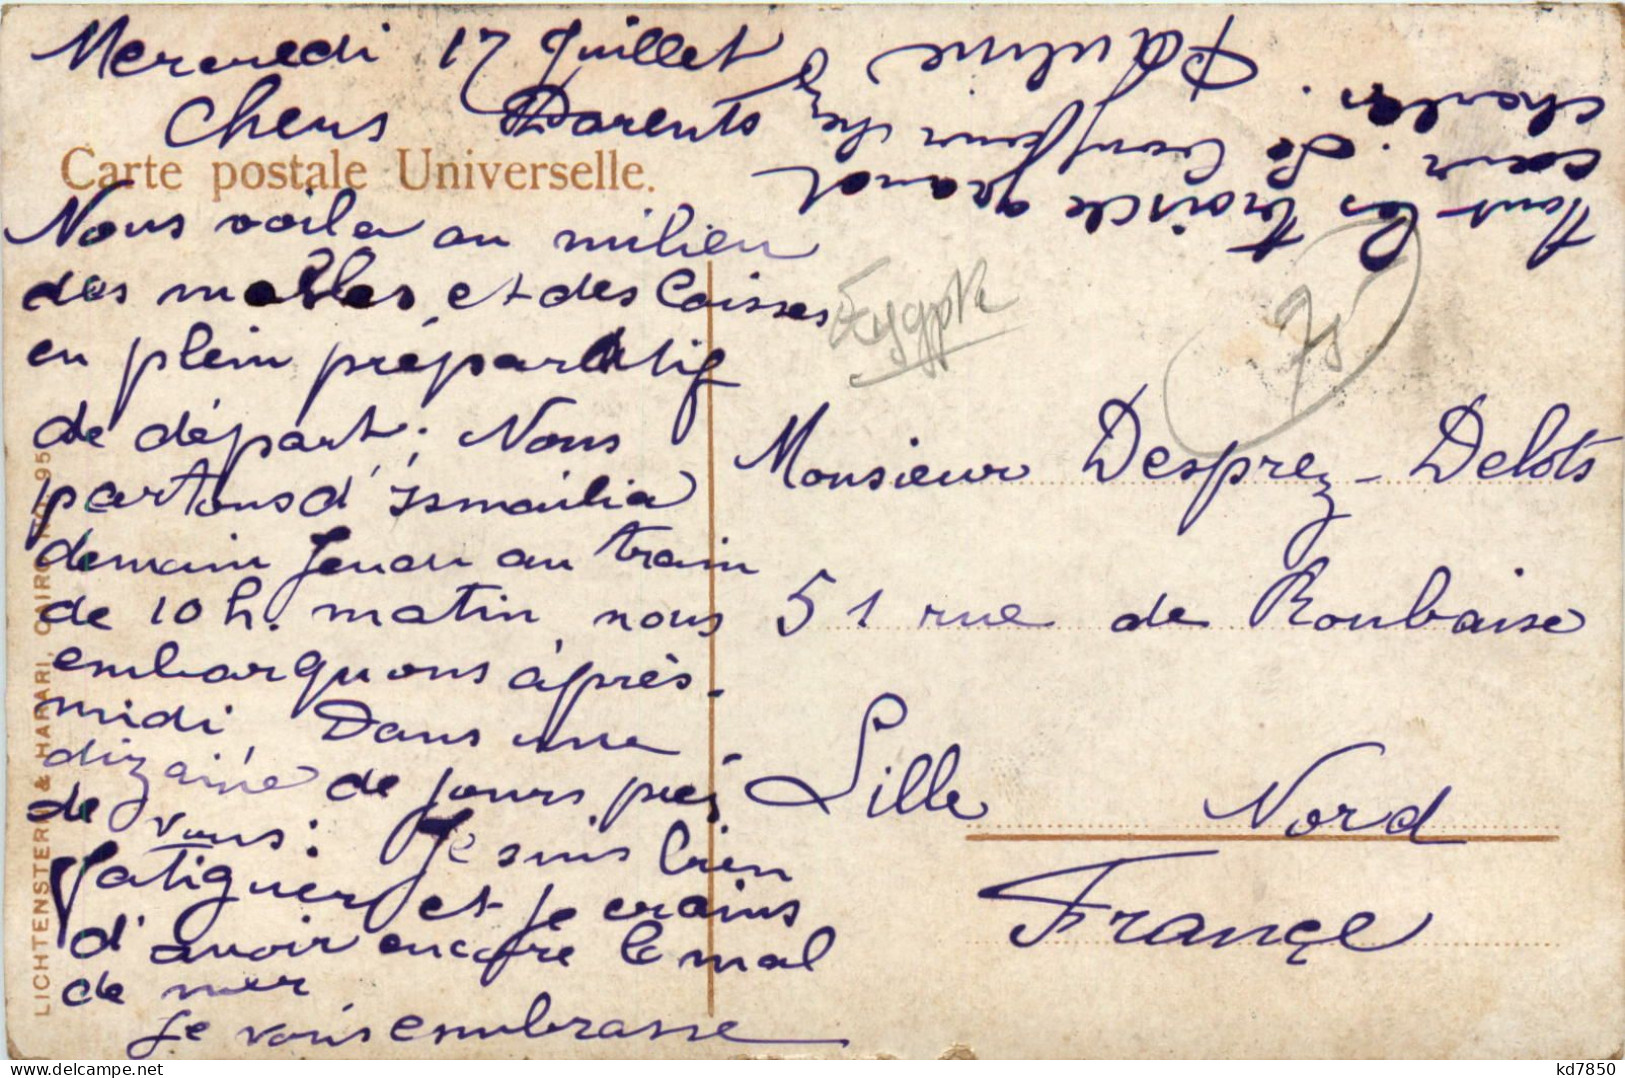 Mercredi 17 Juillet
Chers Parents
Carte postale Universelle.
Nous voila au milieu
des malles et des Caisses
en plein préparatif
de départ; Nous
partons d'Ismailia
demain Jeudi au train
de 10 h. matin nous
embarquons àprès-
midi Dans une
dizaine de jours près
de vous: Je suis bien
fatiguer et je crains
d'avoir encore le mal
de mer
Je vous embrasse
Tout les trois de grand
cœur. Le bonjour chez
Charles. Pauline
Egypte
75
Monsieur Desprez-Delots
51 rue de Roubaise
Lille Nord
Françe
LICHTENSTERN & HARARI, CAIRO No. 95
kd7850